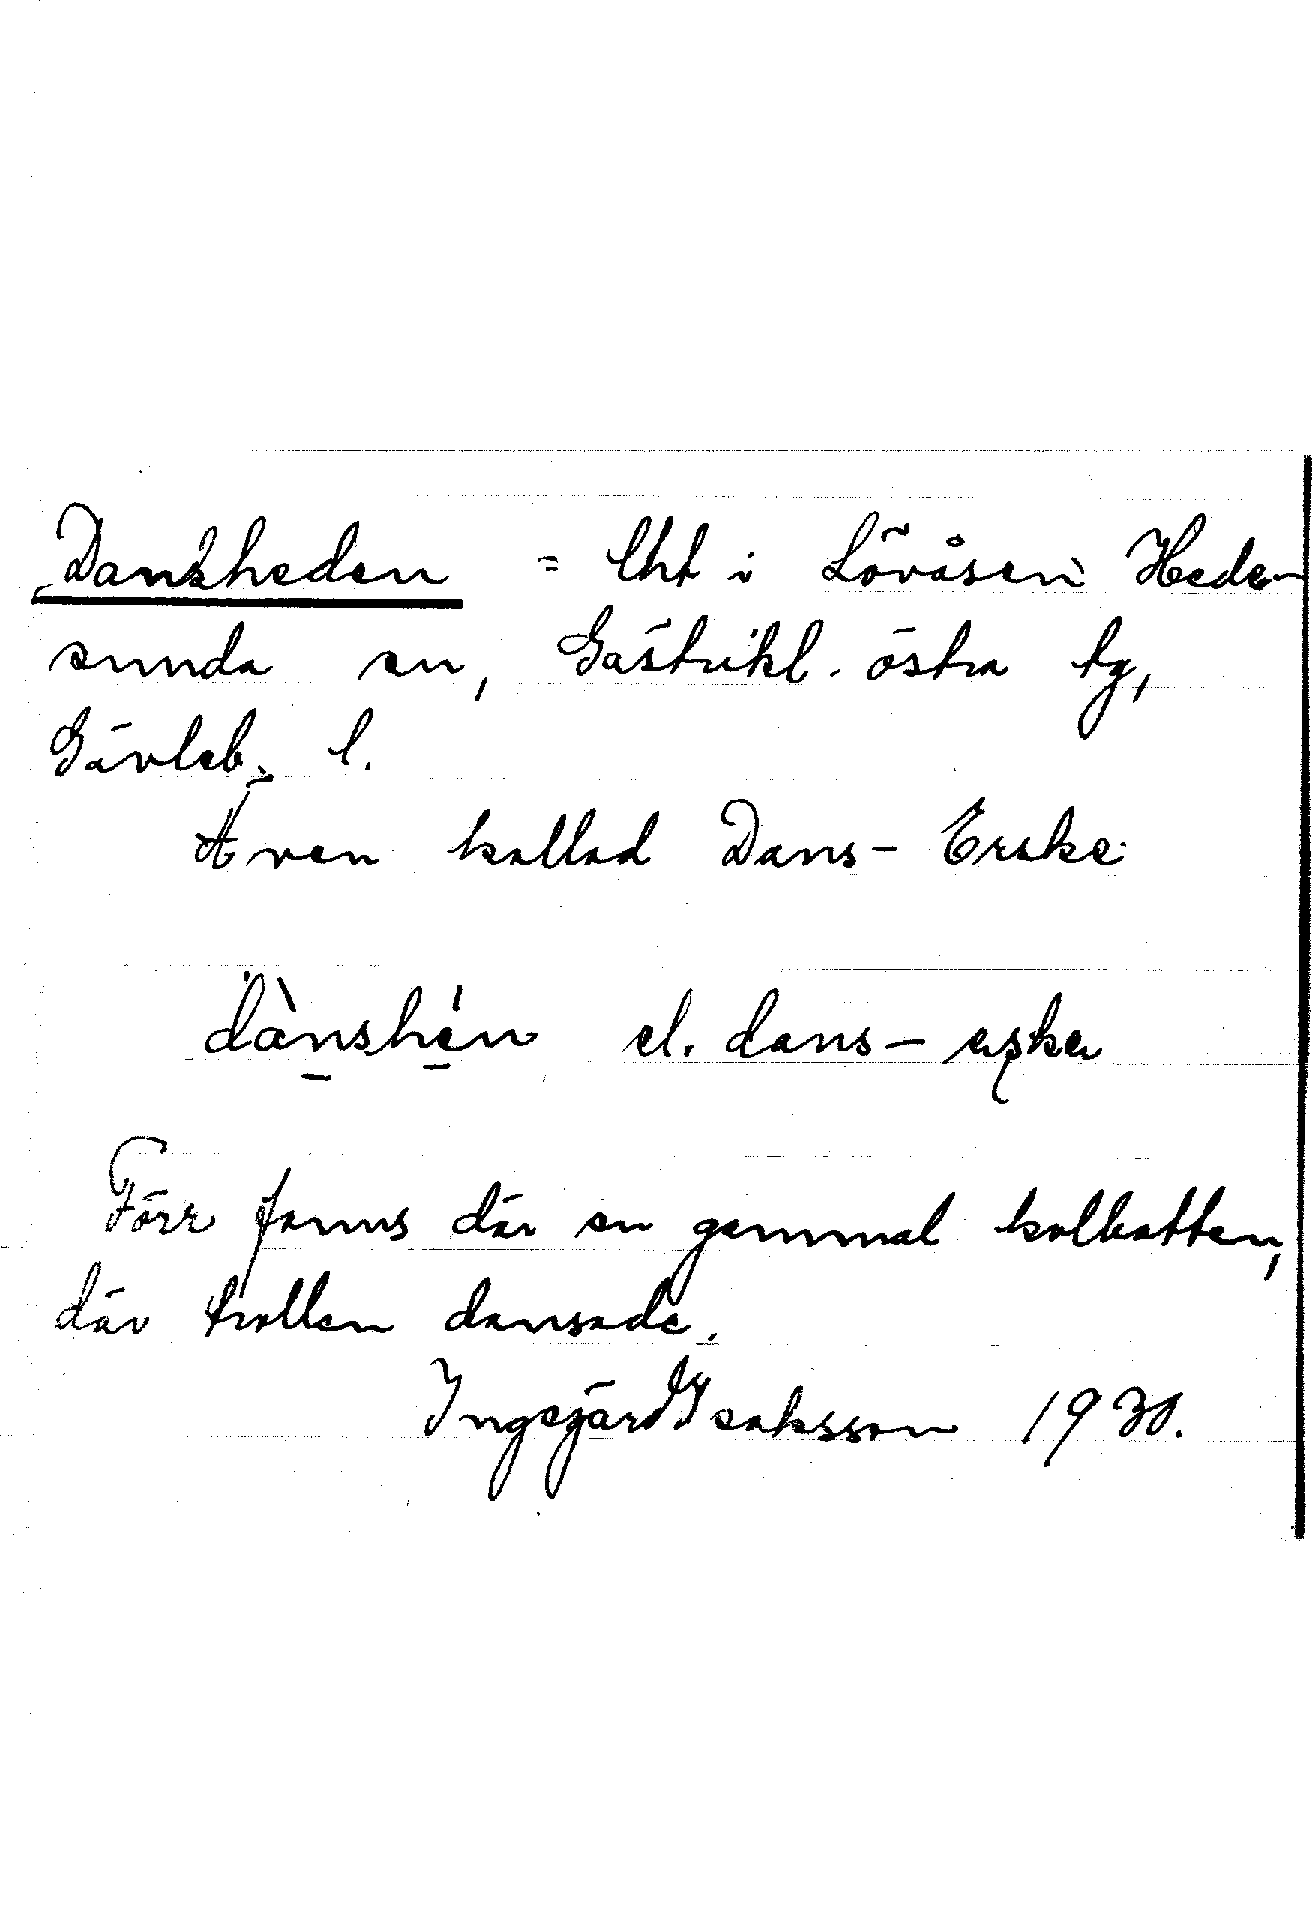 Dansheden = lht i Lövåsen Hede-
sunda sn, Gästrikl. östra tg,
Gävleb. l.
Även kallad Dans-Erske
dànshén el. dans-
Förr fanns där en gammal kolbotten,
där trollen dansade.
Ingegärd Isaksson 1930.